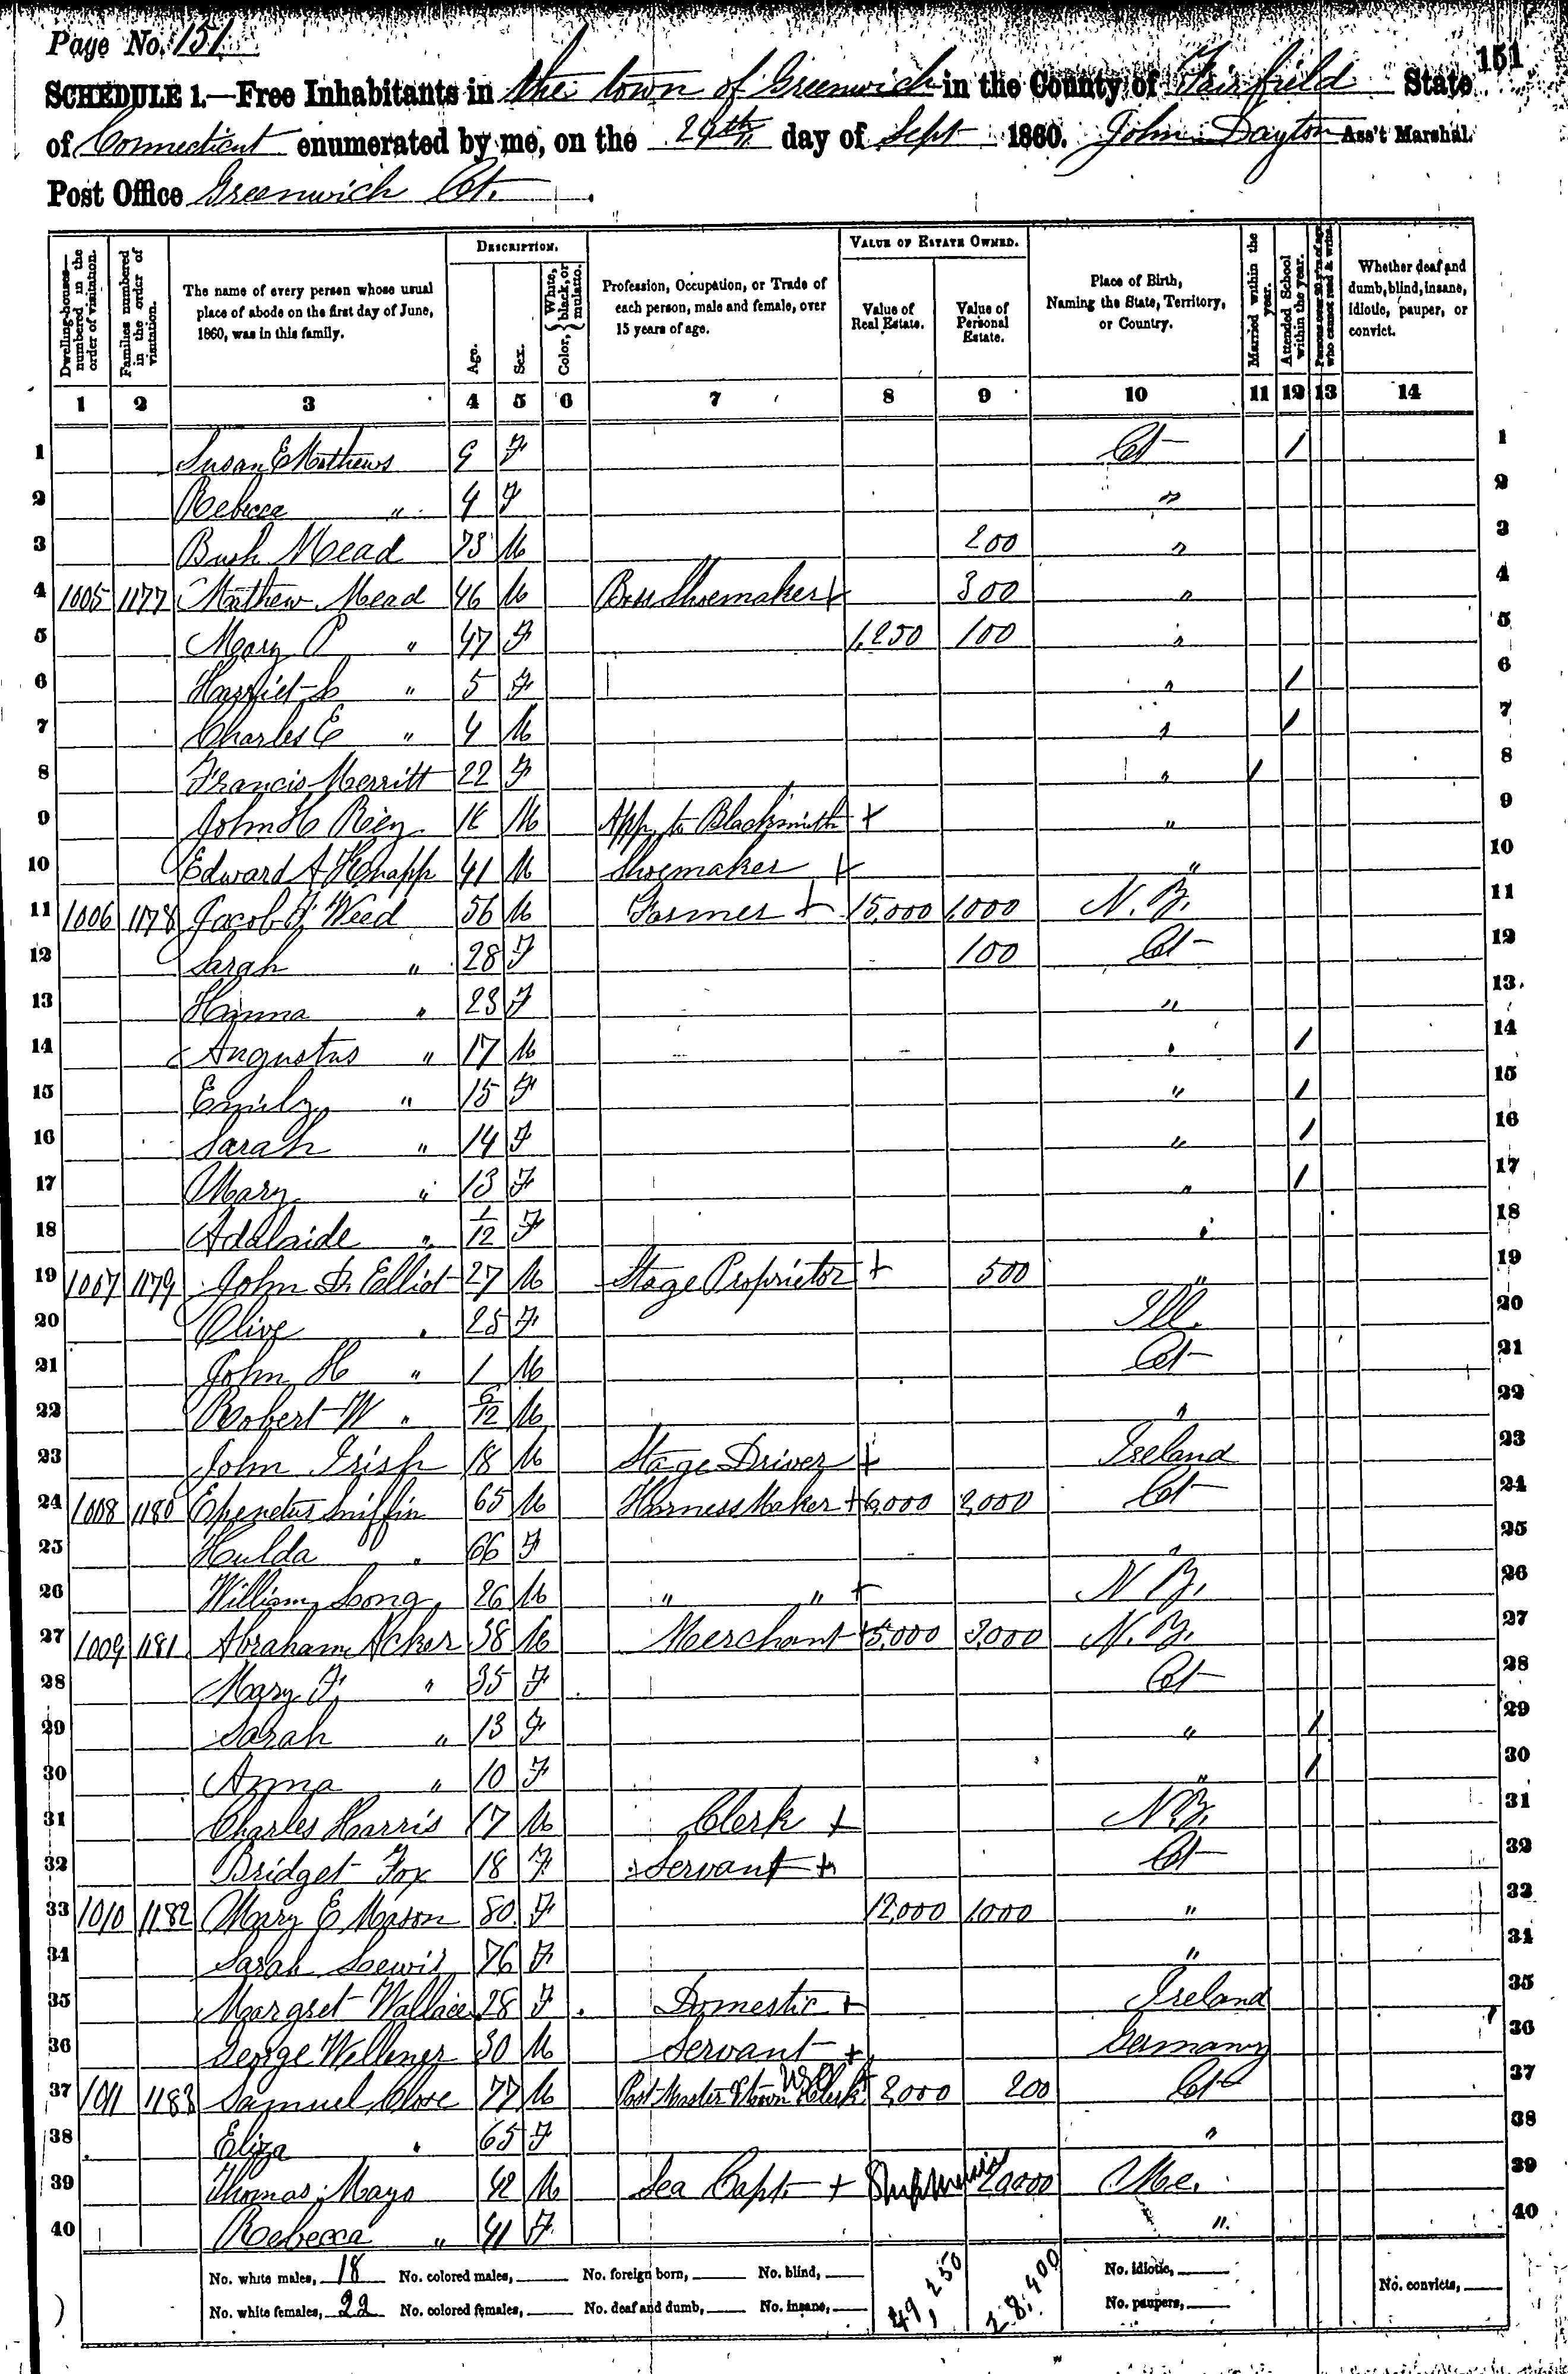 Page No. 151
151
SCHEDULE 1.—Free Inhabitants in the town of Greenwich in the County of Fairfield State
of Connecticut enumerated by me, on the 29th day of Sept 1860. John Dayton Ass't Marshal.
Post Office Greenwich Ct.
Dwelling-houses—numbered in the order of visitation.
Families numbered in the order of visitation.
The name of every person whose usual place of abode on the first day of June, 1860, was in this family.
DESCRIPTION.
Age.
Sex.
Color, { White, black, or mulatto.
Profession, Occupation, or Trade of each person, male and female, over 15 years of age.
VALUE OF ESTATE OWNED.
Value of Real Estate.
Value of Personal Estate.
Place of Birth, Naming the State, Territory, or Country.
Married within the year.
Attended School within the year.
Persons over 20 y'rs of age who cannot read & write.
Whether deaf and dumb, blind, insane, idiotic, pauper, or convict.
1 2 3 4 5 6 7 8 9 10 11 12 13 14
1 Susan E Mathews 9 F Ct 1 1
2 Rebecca " 4 F " 2
3 Bush Mead 73 M 200 " 3
4 1005 1177 Mathew Mead 46 M Boss Shoemaker + 300 " 4
5 Mary P " 47 F 1,250 100 " 5
6 Harriet L " 5 F " 1 6
7 Charles E " 4 M " 1 7
8 Francis Merritt 22 F " 1 8
9 John H 16 M App to Blacksmith + " 9
10 Edward A Knapp 41 M Shoemaker + " 10
11 1006 1178 Jacob F Weed 56 M Farmer + 15,000 1,000 N.Y. 11
12 Sarah " 28 F 100 Ct 12
13 Hanna " 23 F " 13
14 Augustus " 17 M " 1 14
15 Emily " 15 F " 1 15
16 Sarah " 14 F " 1 16
17 Mary " 13 F " 1 17
18 Adalaide " 1/12 F " 18
19 1007 1179 John D. Elliot 27 M Stage Proprietor + 500 " 19
20 Olive " 25 F Ill. 20
21 John H " 1 M Ct 21
22 Robert W " 6/12 M " 22
23 John Irish 18 M Stage Driver + Ireland 23
24 1008 1180 Epenetus Sniffin 65 M Harness Maker + 6,000 2,000 Ct 24
25 Hulda " 66 F " 25
26 William Long 26 M " " + N Y. 26
27 1009 1181 Abraham Acker 38 M Merchant + 5,000 3,000 N.Y. 27
28 Mary F " 35 F Ct 28
29 Sarah " 13 F " 1 29
30 Anna " 10 F " 1 30
31 Charles Harris 17 M Clerk + N.Y. 31
32 Bridget Fox 18 F Servant + Ct 32
33 1010 1182 Mary E Mason 80 F 12,000 1,000 " 33
34 Sarah Lewis 76 F " 34
35 Margret Wallace 28 F Domestic + Ireland 35
36 George Wellener 30 M Servant + Germany 36
37 1011 1183 Samuel Close 77 M Post Master & town Clerk + 2,000 200 Ct 37
38 Eliza " 65 F " 38
39 Thomas Mayo 42 M Sea Capt. + 20,000 Me. 39
40 Rebecca " 41 F " 40
No. white males, 18 No. colored males, No. foreign born, No. blind, 49,250 28,400 No. idiotic, No. convicts,
No. white females, 22 No. colored females, No. deaf and dumb, No. insane, No. paupers,